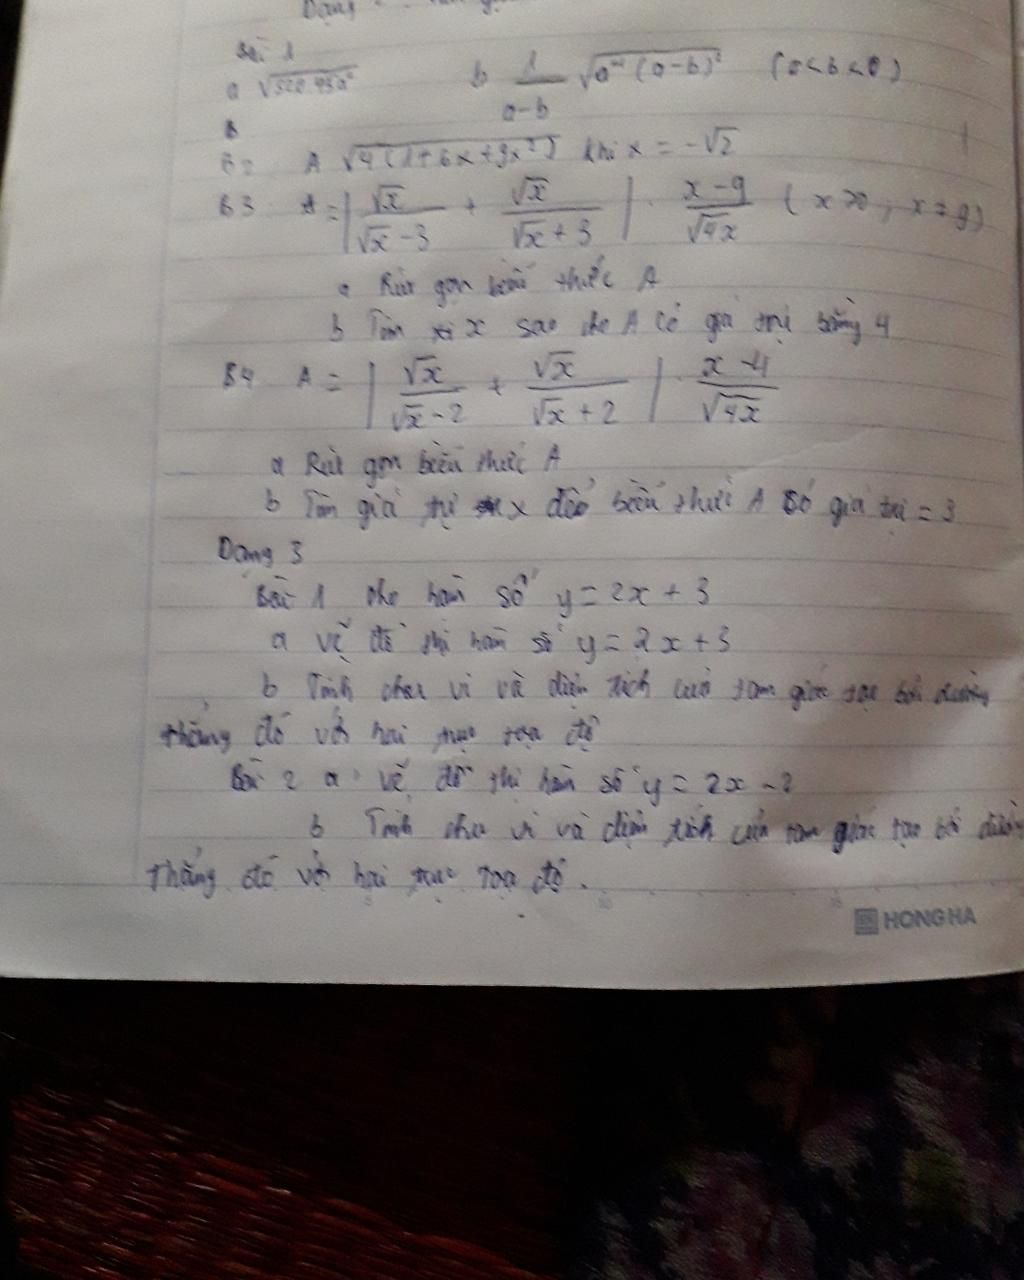 Dạng
Bài 1
a √520.45a² b 1/(a-b) √a⁴(a-b)² (a<b<0)
B2 A √4(1+6x+9x²) khi x = -√2
B3 A = | √x/(√x-3) + √x/(√x+3) | . (x-9)/√4x ( x>0, x≠9)
a Rút gọn biểu thức A
b Tìm x sao cho A có giá trị bằng 4
B4 A = | √x/(√x-2) + √x/(√x+2) | . (x-4)/√4x
a Rút gọn biểu thức A
b Tìm giá trị x để biểu thức A có giá trị = 3
Dạng 3
Bài 1 cho hàm số y = 2x + 3
a vẽ đồ thị hàm số y = 2x+3
b Tính chu vi và diện tích của tam giác tạo bởi đường
thẳng đó với hai trục tọa độ
Bài 2 a vẽ đồ thị hàm số y = 2x - 2
b Tính chu vi và diện tích của tam giác tạo bởi đường
thẳng đó với hai trục tọa độ.
HONG HA